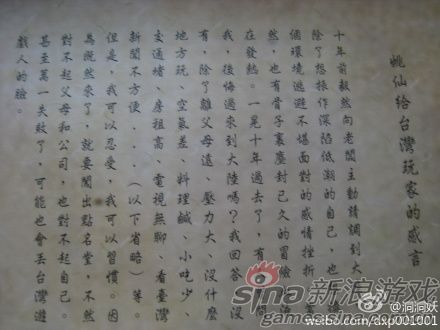 姚仙給台灣玩家的感言
十年前毅然向老闆主動請調到大
除了想振作深陷低潮的自己，也
個環境逃避不堪面對的感情挫折
然，也有骨子裏塵封已久的冒險
在發熱。一晃十年過去了，有
我，後悔過來到大陸嗎？我回答沒
有，除了離父母遠、壓力大、沒什麼
地方玩、空氣差、料理鹹、小吃少、
交通堵、房租高、電視無聊、看臺灣
新聞不方便......（以下省略）等。
但是，我可以忍受，我可以習慣。因
為既然來了，就要闖出點名堂，不然
對不起父母和公司，也對不起自己。
甚至萬一失敗了，可能也會丟台灣遊
戲人的臉。
sina 新浪游戏
games.sina.com.cn
@洞洞妖
weibo.com/dxp001001